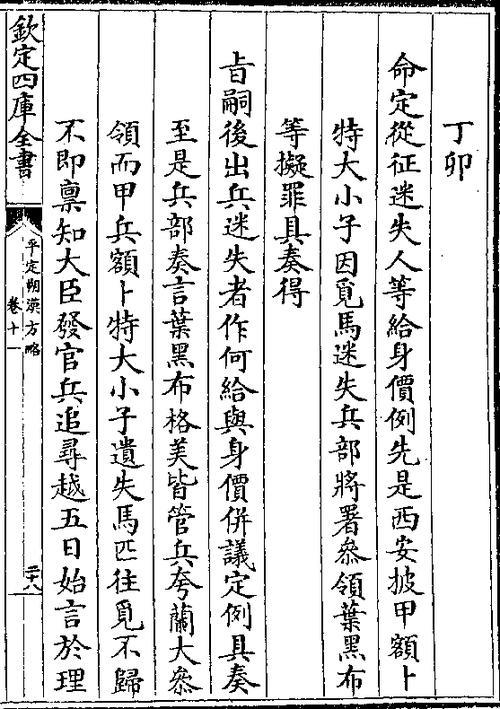 丁卯
命定從征迷失人等給身價例先是西安披甲額卜
特大小子因覓馬迷失兵部將署叅領葉黑布
等擬罪具奏得
㫖嗣後出兵迷失者作何給與身價併議定例具奏
至是兵部奏言葉黑布格美皆管兵夸蘭大叅
領而甲兵額卜特大小子遺失馬匹往覓不歸
不即禀知大臣發官兵追尋越五日始言於理
欽定四庫全書
平定朔漠方略
卷十一
二十八